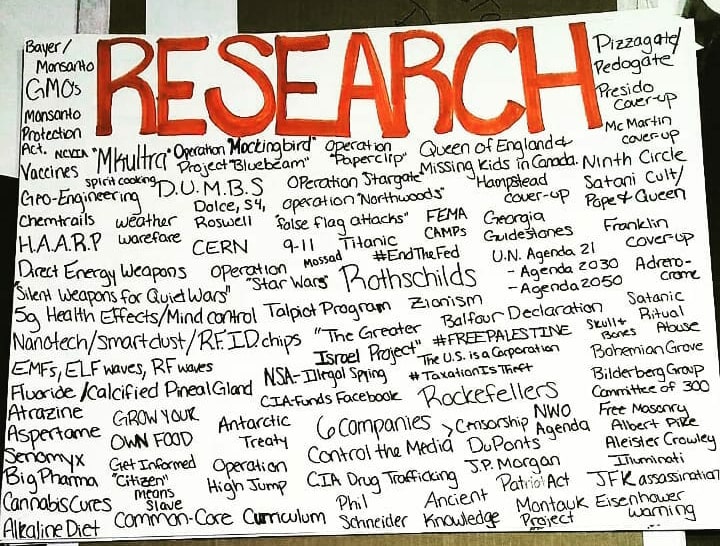 RESEARCH
Bayer/
Monsanto
GMOs
Monsanto
Protection
Act. NCVIA
Vaccines
Geo-Engineering
Chemtrails
H.A.A.R.P
weather
warefare
"Mkultra"
spirit cooking
Operation "Mockingbird"
Project "Bluebeam"
operation
"Paperclip"
Queen of England &
Missing kids in Canada.
Pizzagate/
Pedogate
Presido
cover-up
McMartin
cover-up
Ninth Circle
Satanic Cult/
Pope & Queen
D.U.M.B.S
Dolce, S4,
Roswell
Operation "Stargate"
operation "Northwoods"
"false flag attacks"
Hampstead
cover-up
FEMA
CAMPs
Georgia
Guidestones
Franklin
cover-up
CERN
9-11
Titanic
Mossad
#EndTheFed
U.N. Agenda 21
- Agenda 2030
- Agenda 2050
Adreno-
crome
Direct Energy Weapons
operation
"Star Wars"
Rothschilds
"Silent Weapons for Quiet Wars"
5g Health Effects/Mind control
Talpiot Program
Zionism
Balfour Declaration
Satanic
Ritual
Abuse
Nanotech/smartdust/RFID chips
"The Greater
Israel Project"
#FREEPALESTINE
The U.S. is a Corporation
#TaxationIsTheft
Skull+
Bones
Bohemian Grove
EMFs, ELF waves, RF waves
NSA-Illegal Spying
CIA-Funds Facebook
Rockefellers
Bilderberg Group
Committee of 300
Fluoride/Calcified Pineal Gland
Atrazine
Aspertame
Senomyx
Big Pharma
Cannabis Cures
Alkaline Diet
GROW YOUR
OWN FOOD
Get Informed
"Citizen"
means
slave
Common-Core Curriculum
Antarctic
Treaty
Operation
High Jump
6 Companies
Control the Media
> Censorship
NWO
Agenda
Free Masonry
Albert Pike
Aleister Crowley
Illuminati
DuPonts
J.P. Morgan
CIA Drug Trafficking
Patriot Act
JFK assassination
Phil
Schneider
Ancient
Knowledge
Montauk
Project
Eisenhower
warning